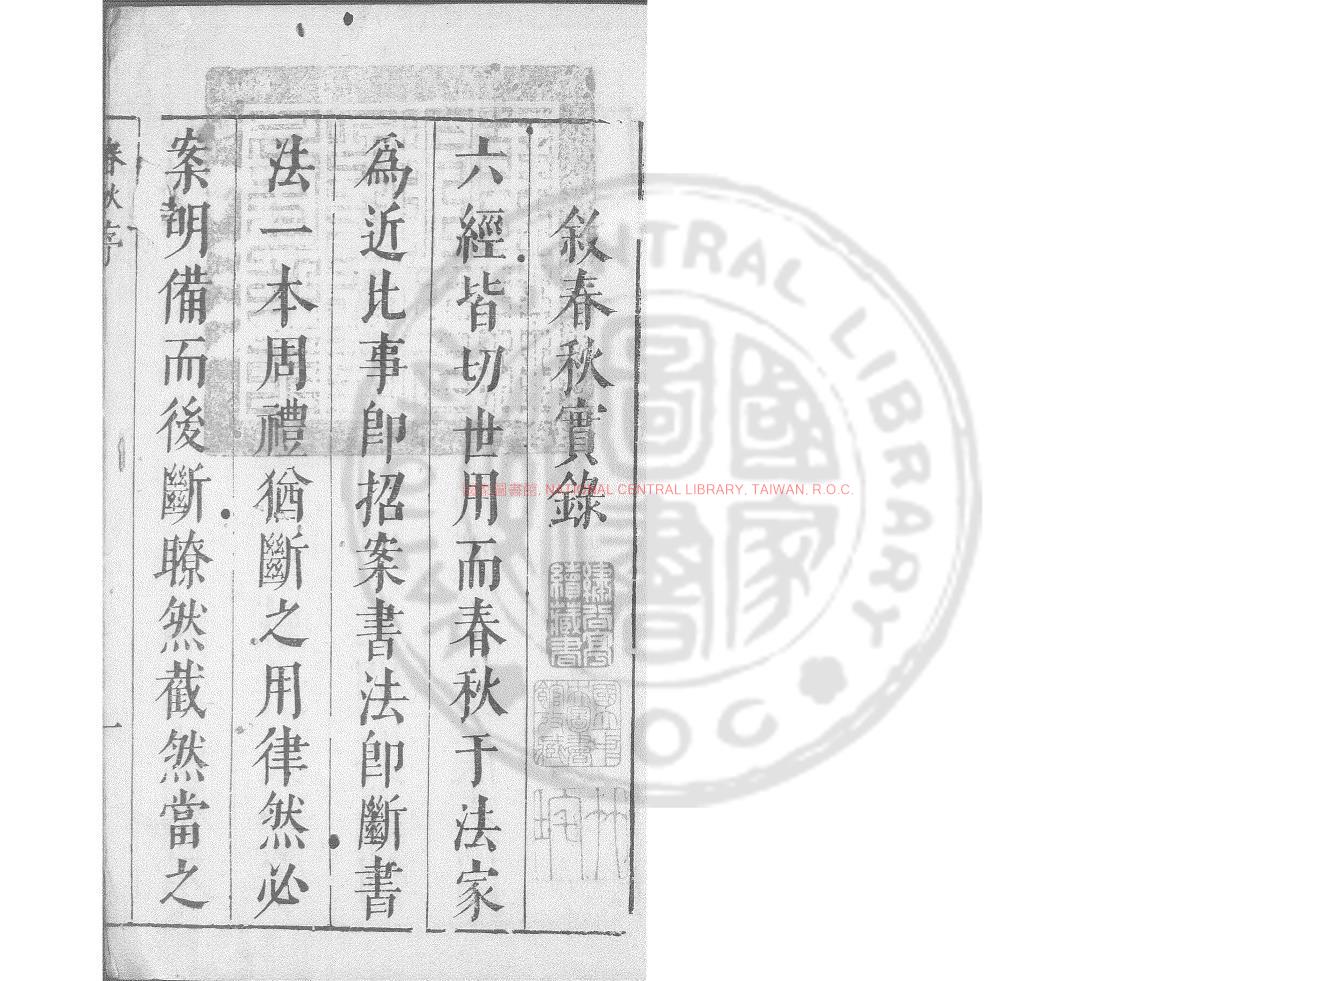 敘春秋實錄
六經皆切世用而春秋于法家
爲近比事卽招案書法卽斷書
法一本周禮猶斷之用律然必
案明備而後斷瞭然截然當之
春秋序
一
國家圖書館, NATIONAL CENTRAL LIBRARY, TAIWAN, R.O.C.